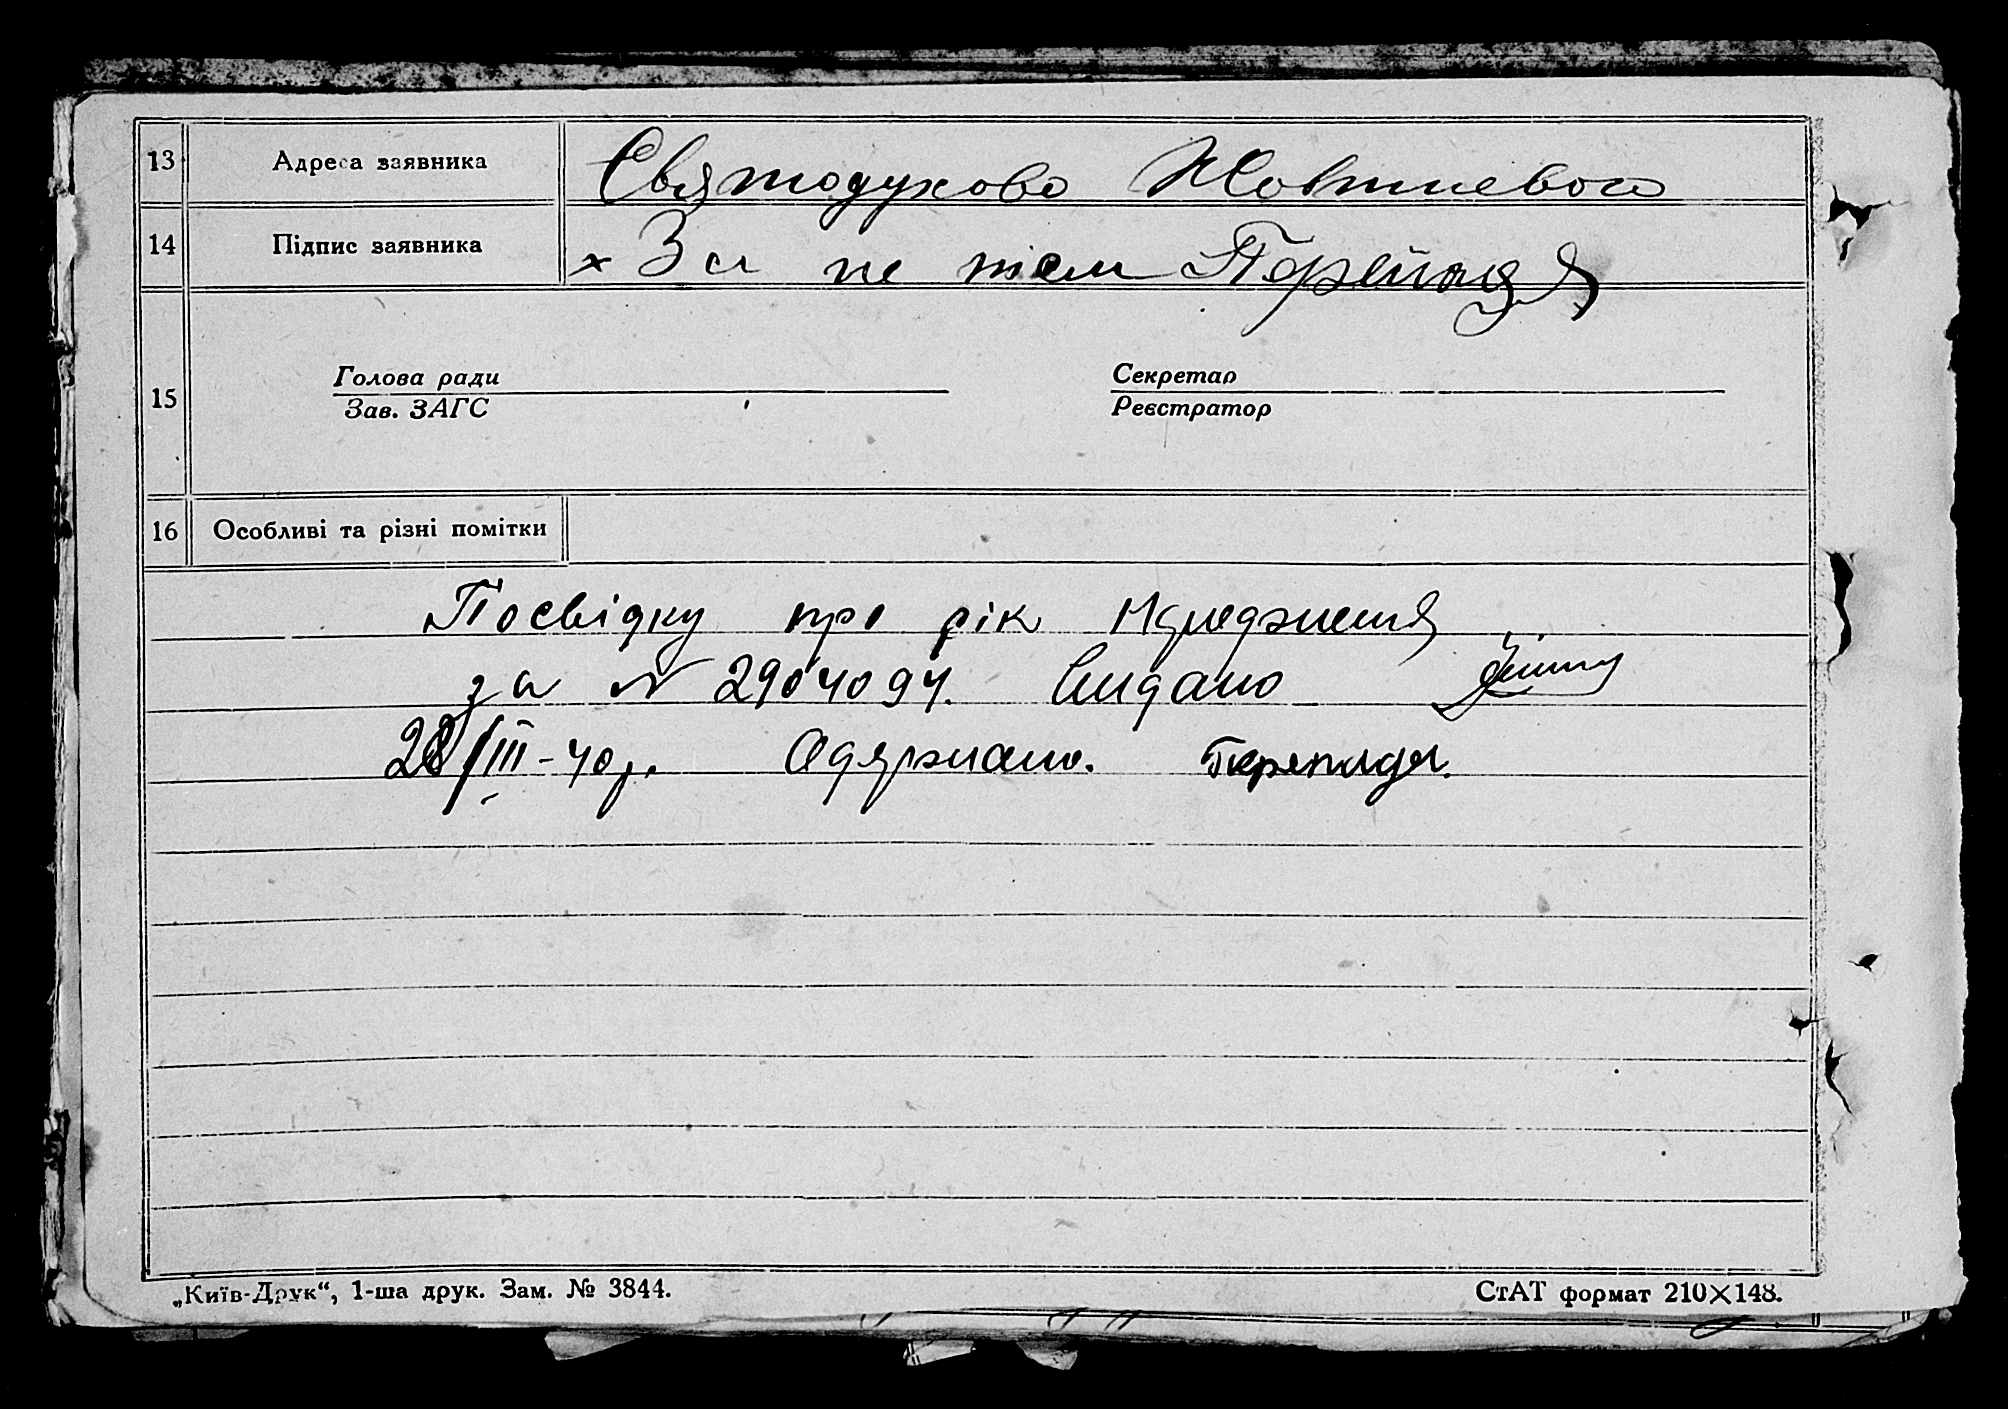 13 Адреса заявника Святодухово Жовтневого
14 Підпис заявника х За не
15 Голова ради Секретар
Зав. ЗАГС Реєстратор
16 Особливі та різні помітки
Посвідку про рік
за № 2904094. Видано
28/III-40р. Одержано.
„Київ-Друк“, 1-ша друк. Зам. № 3844. СтАТ формат 210×148.